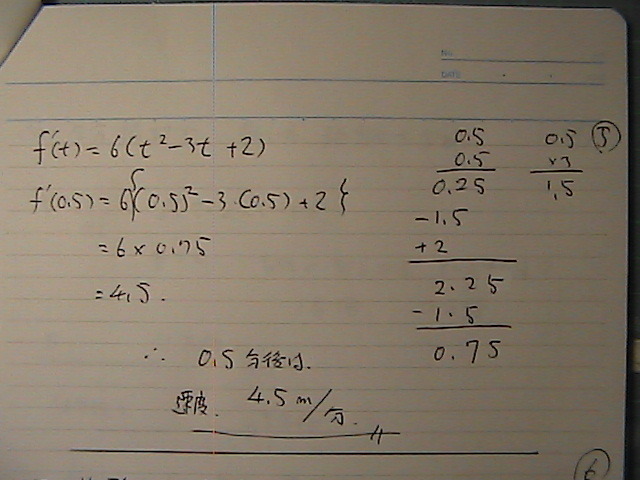 NO.
DATE
⑤
f'(t) = 6(t²-3t+2)
f'(0.5) = 6{(0.5)²-3・(0.5)+2}
= 6 × 0.75
= 4.5.
∴ 0.5分後は.
速度. 4.5 m/分.
0.5
0.5
0.25
-1.5
+2
2.25
-1.5
0.75
0.5
×3
1.5
⑥